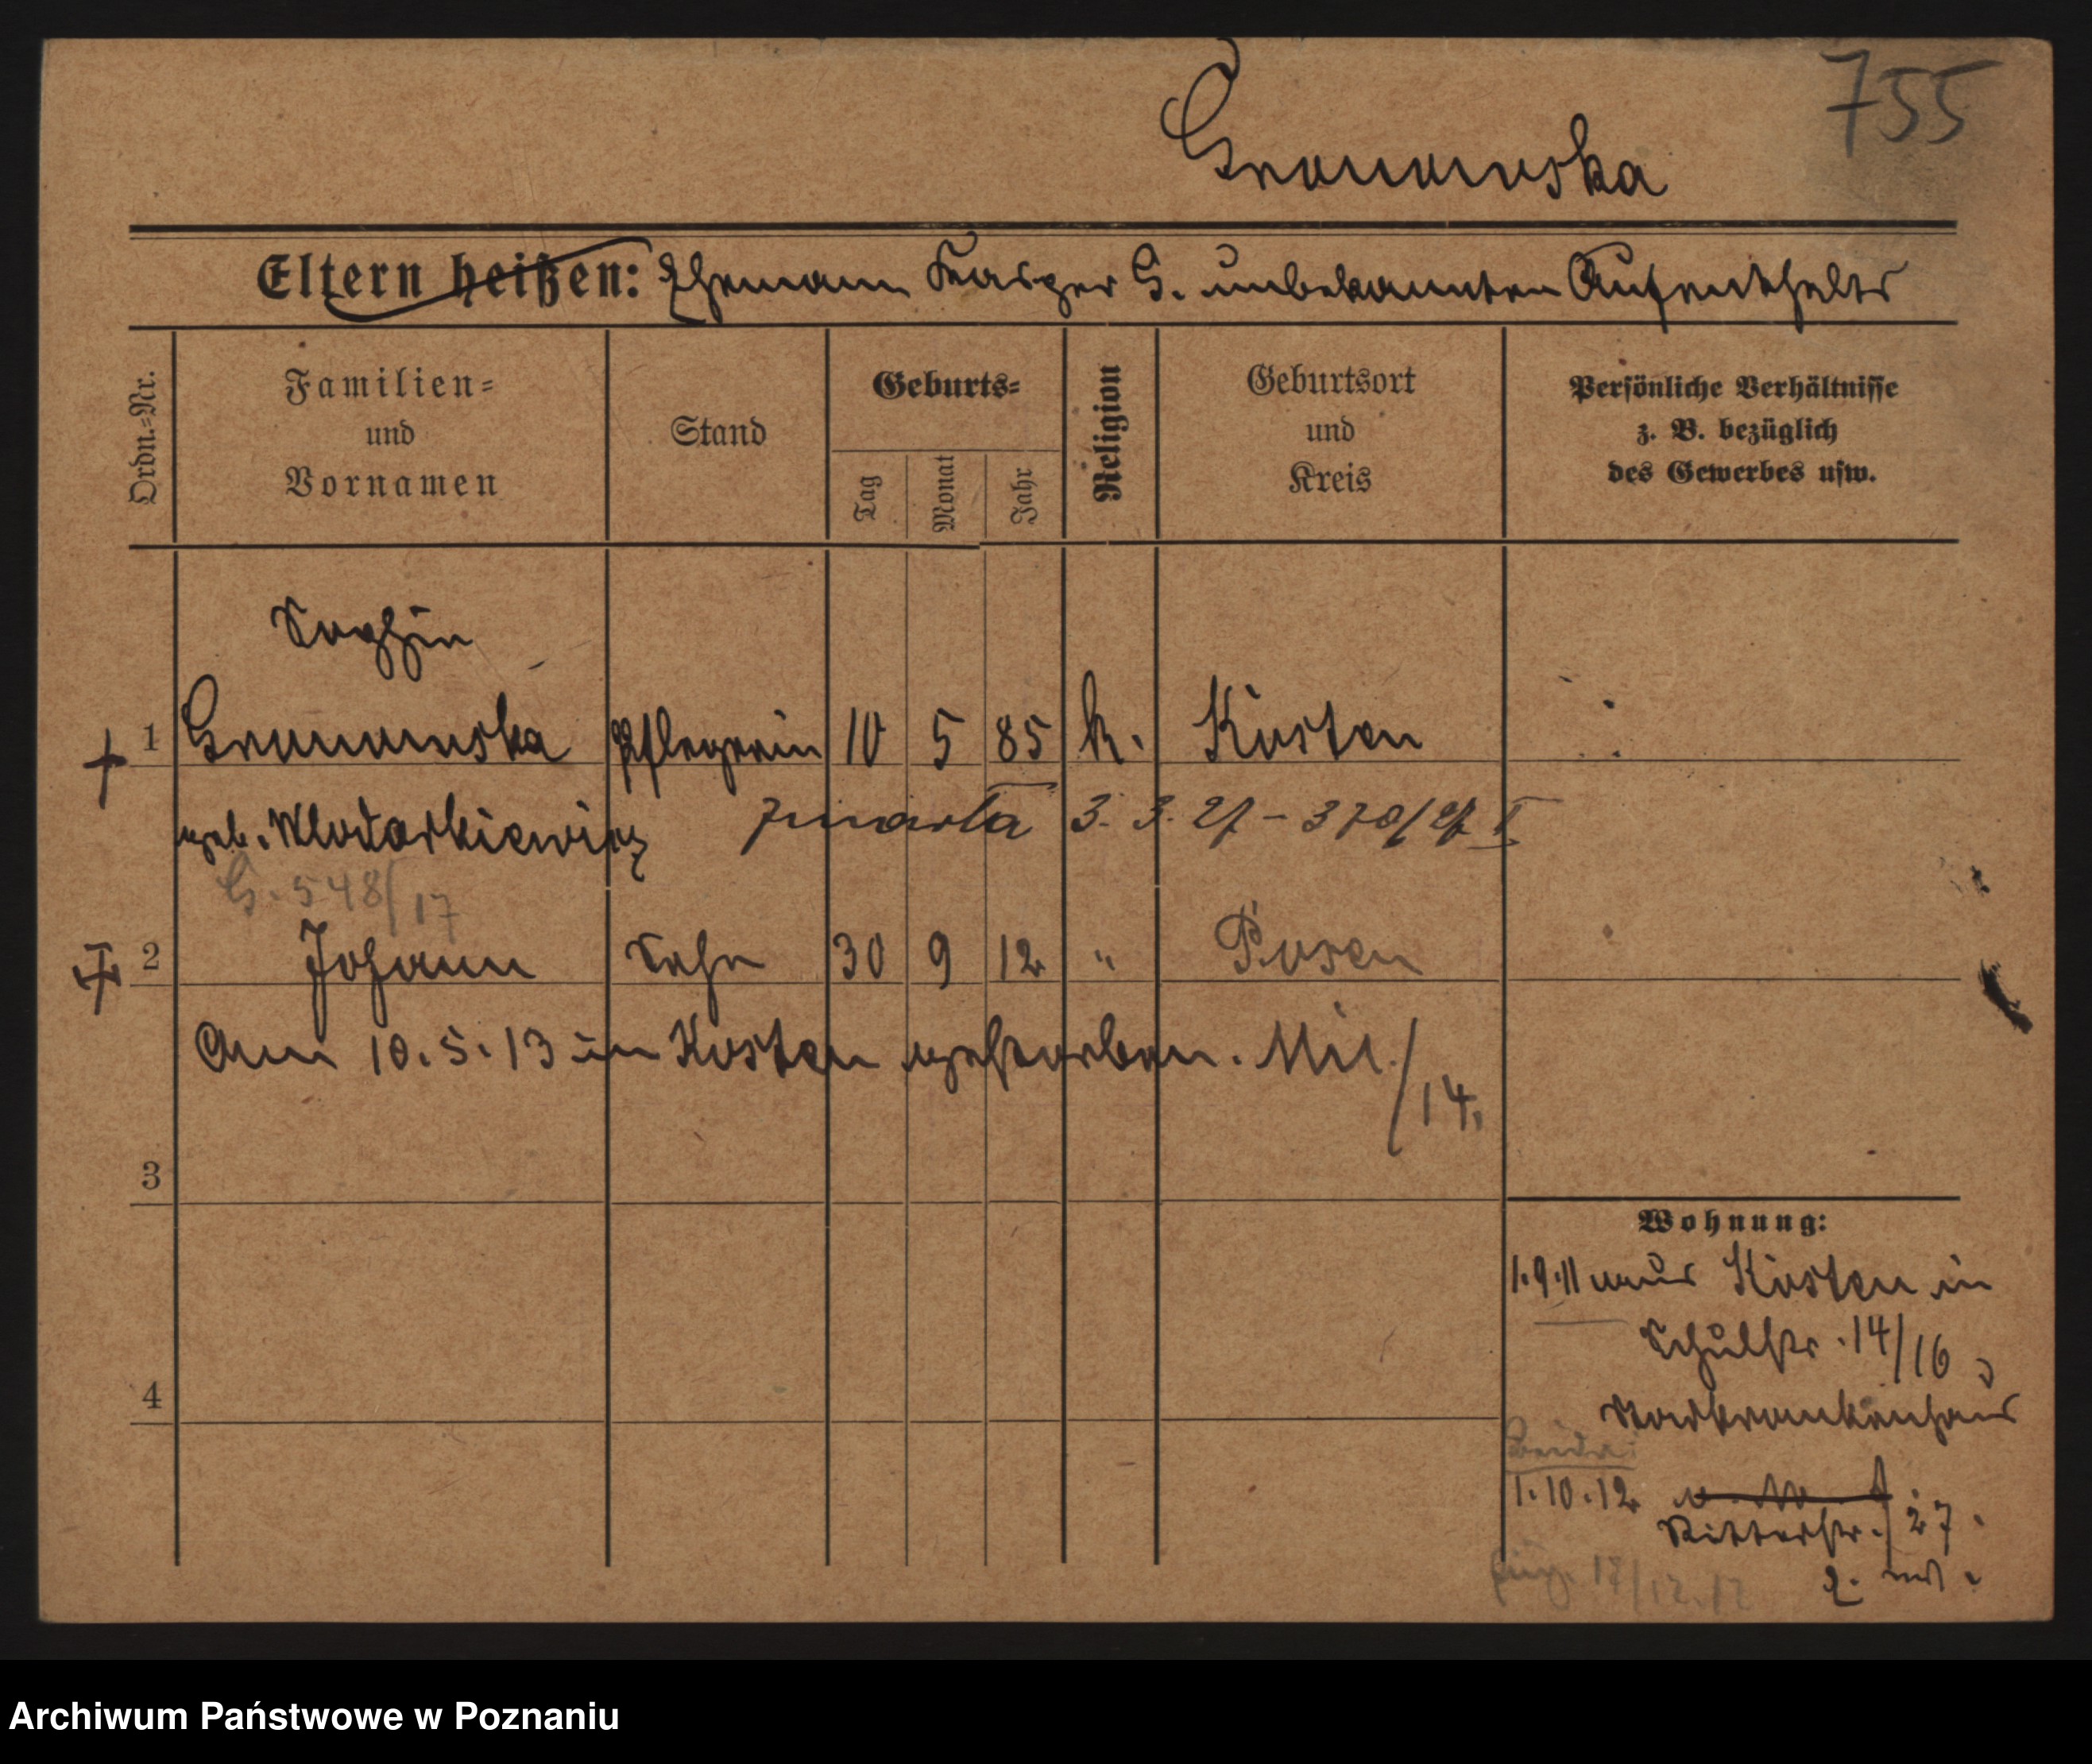 755
Gronowska
Eltern heißen: Ehemann Kasper G. unbekannten Aufenthalts
Ordn.-Nr.
Familien-
und
Vornamen
Stand
Geburts-
Tag
Monat
Jahr
Religion
Geburtsort
und
Kreis
Persönliche Verhältnisse
z. B. bezüglich
des Gewerbes usw.
Sophie
1 Gronowska Pflegerin 10 5 85 k. Kosten
geb. Wlodarkiewicz zmarła 3. 3. 27 - 370/27 I
G. 548/17
2 Johann Sohn 30 9 12 " Posen
Am 10.5.13 in Kosten gestorben. Mil./14.
3
4
Wohnung:
1.9.11 aus Kosten in
Schulstr. 14/16
Stadtkrankenhaus
Beide:
1.10.12
Ritterstr. 27.
17/12.12
Archiwum Państwowe w Poznaniu